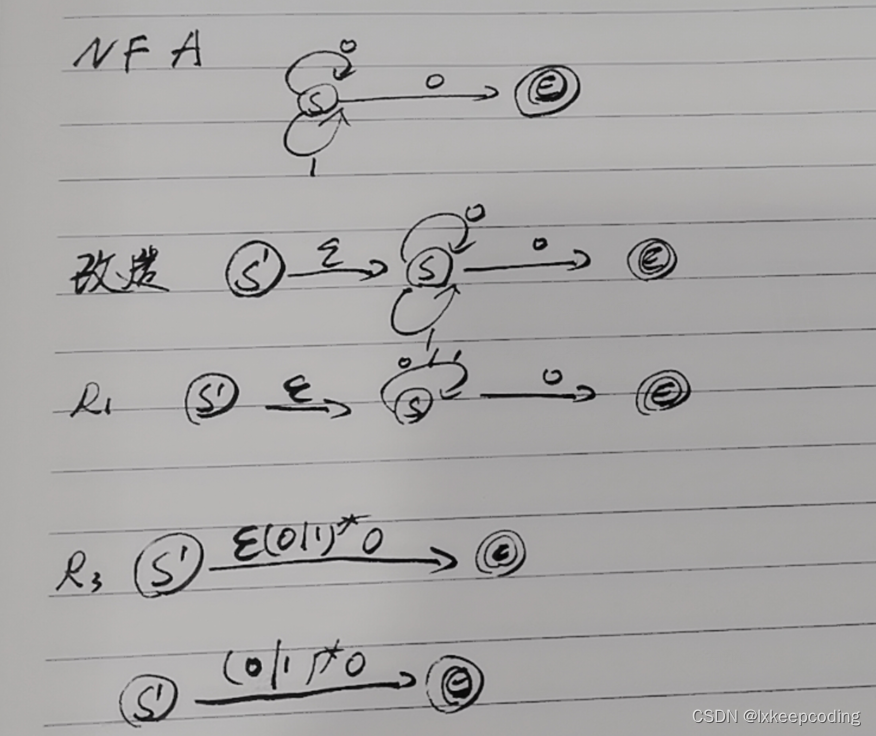 NFA
0
S 0 E
1
0
改造 S' ε S 0 E
1
0|1
R₁ S' ε S 0 E
R₃ S' ε(0|1)*0 E
S' (0|1)*0 E
CSDN @lxkeepcoding